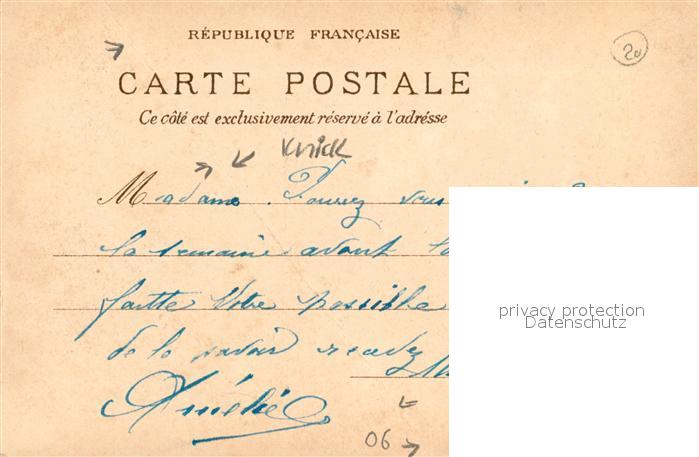 RÉPUBLIQUE FRANÇAISE
20
CARTE POSTALE
Ce côté est exclusivement réservé à l'adrésse
Knick
Madame. Pouvez vous
la semaine avant la
faitte Votre possible
de la savoir
Amélie
06
privacy protection
Datenschutz